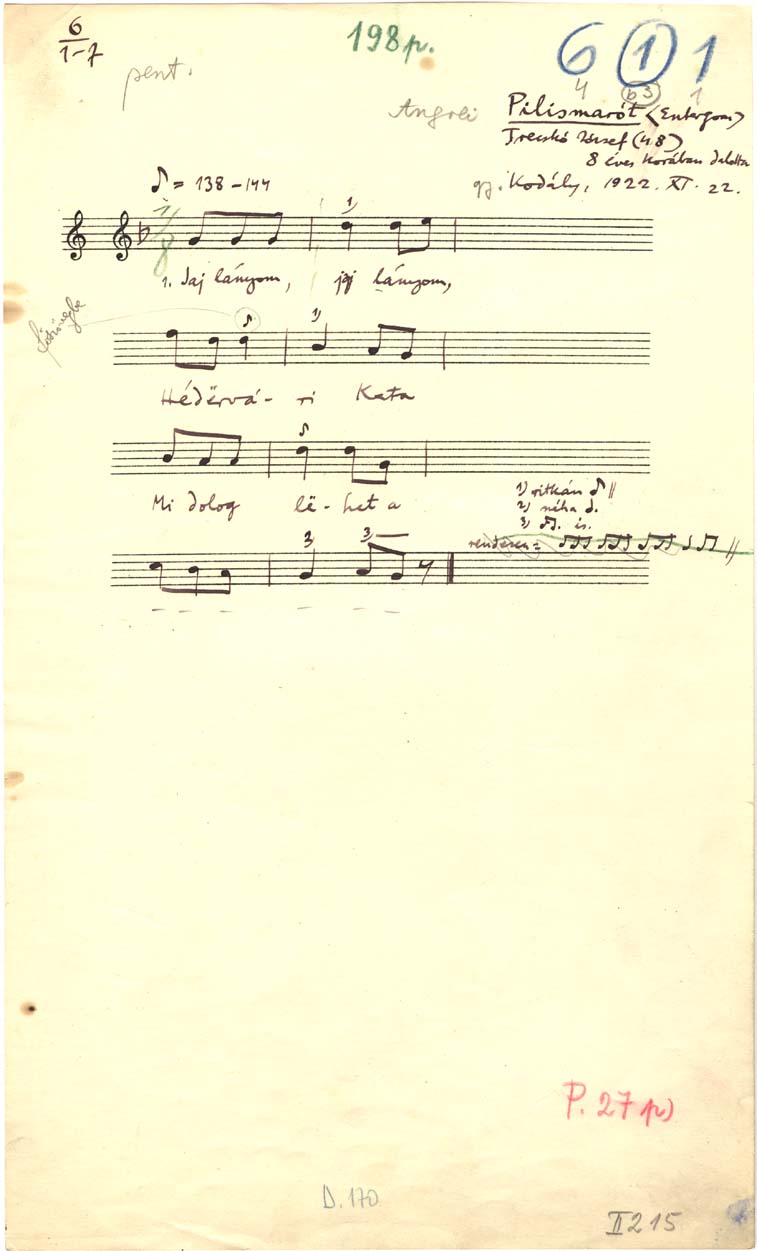 6
1-7
198p.
6 1 1
4 b3 1
pent.
Pilismarót (Esztergom)
Trecskó József (48)
8 éves korában dalolta
gy. Kodály, 1922. XI. 22.
♪ = 138-144
1)
1. Jaj lányom, jaj lányom,
1)
Hédërvá- ri Kata
Mi dolog lë- het a
1) ritkán ♪
2) néha ♩.
3) ♫. is.
rendesen =
3) 3)
P. 27 p)
D. 170
II 215